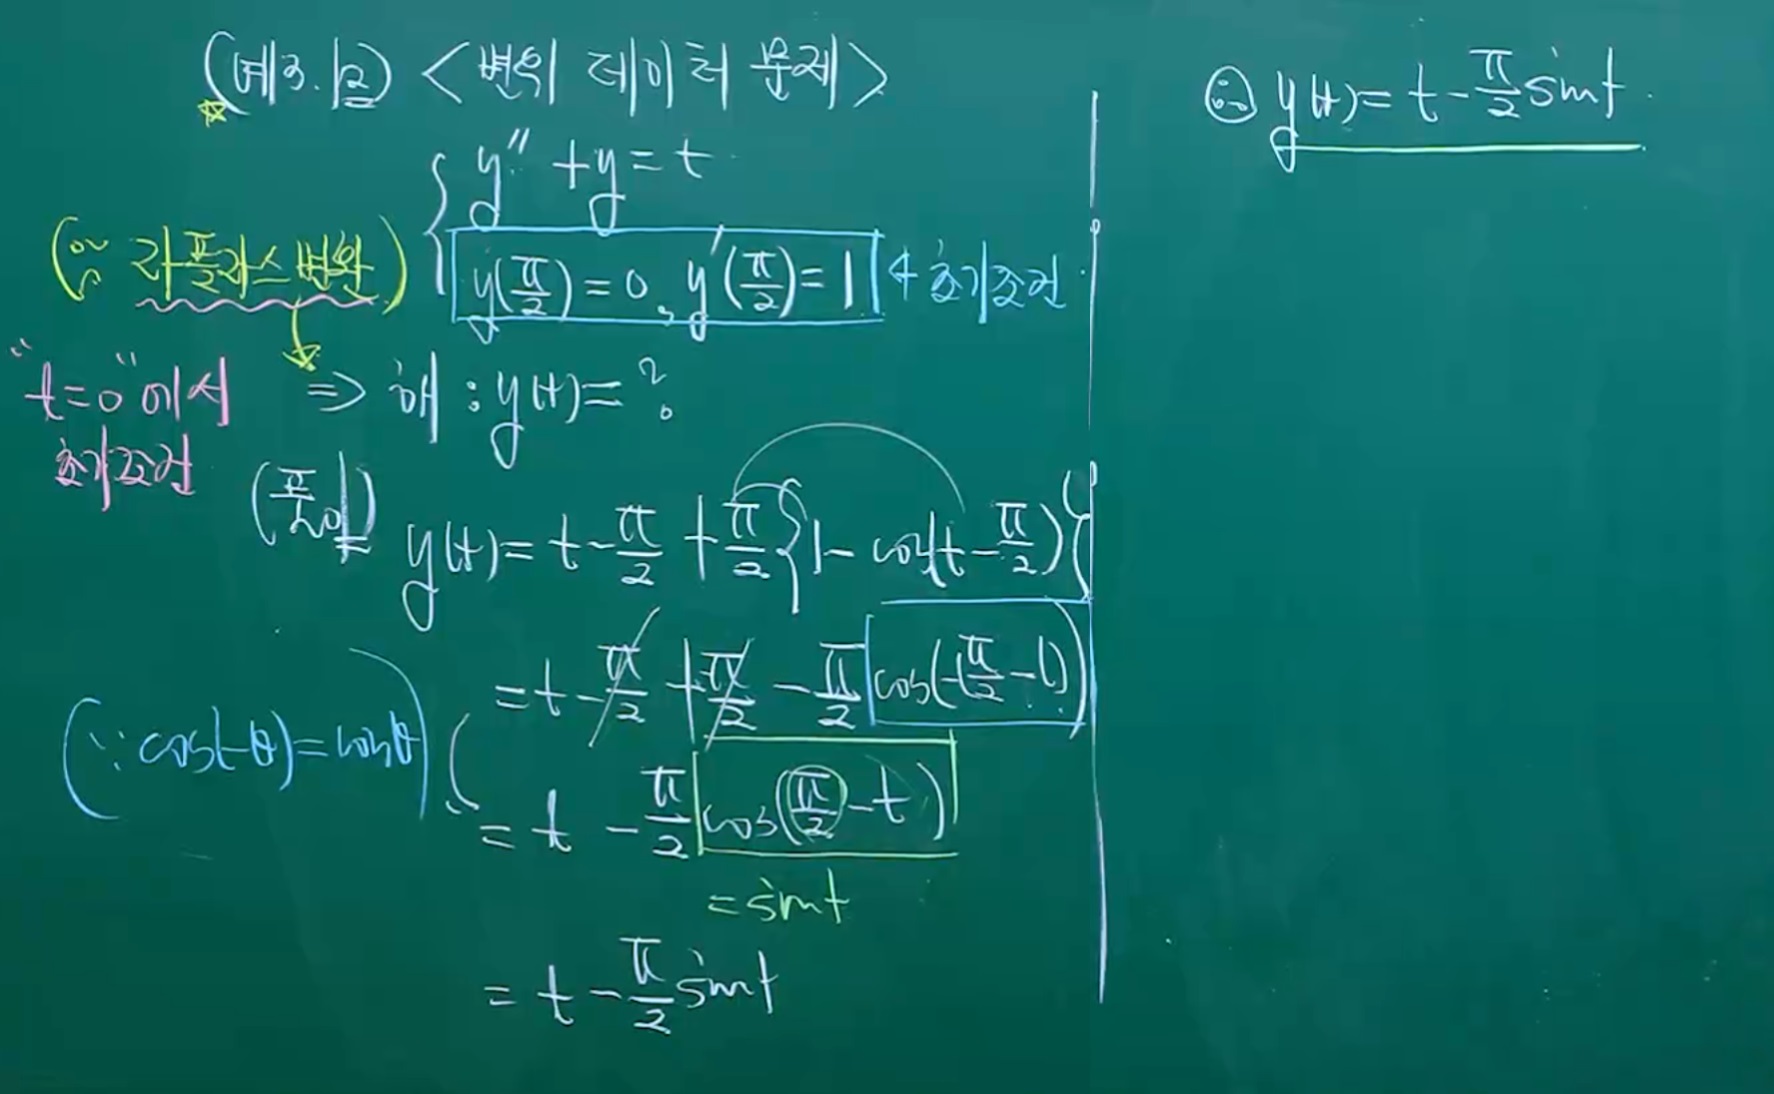 (예3.12) <변위 데이터 문제>
y'' + y = t
(∵ 라플라스 변환)
y(π/2) = 0, y'(π/2) = 1 ← 초기조건
"t=0"에서
초기조건
⇒ 해 : y(t) = ?
(풀이)
y(t) = t - π/2 + π/2 {1 - cos(t - π/2)}
= t - π/2 + π/2 - π/2 cos(-(π/2 - t))
(∵ cos(-θ) = cosθ)
= t - π/2 cos(π/2 - t)
= sint
= t - π/2 sint
∴ y(t) = t - π/2 sint.